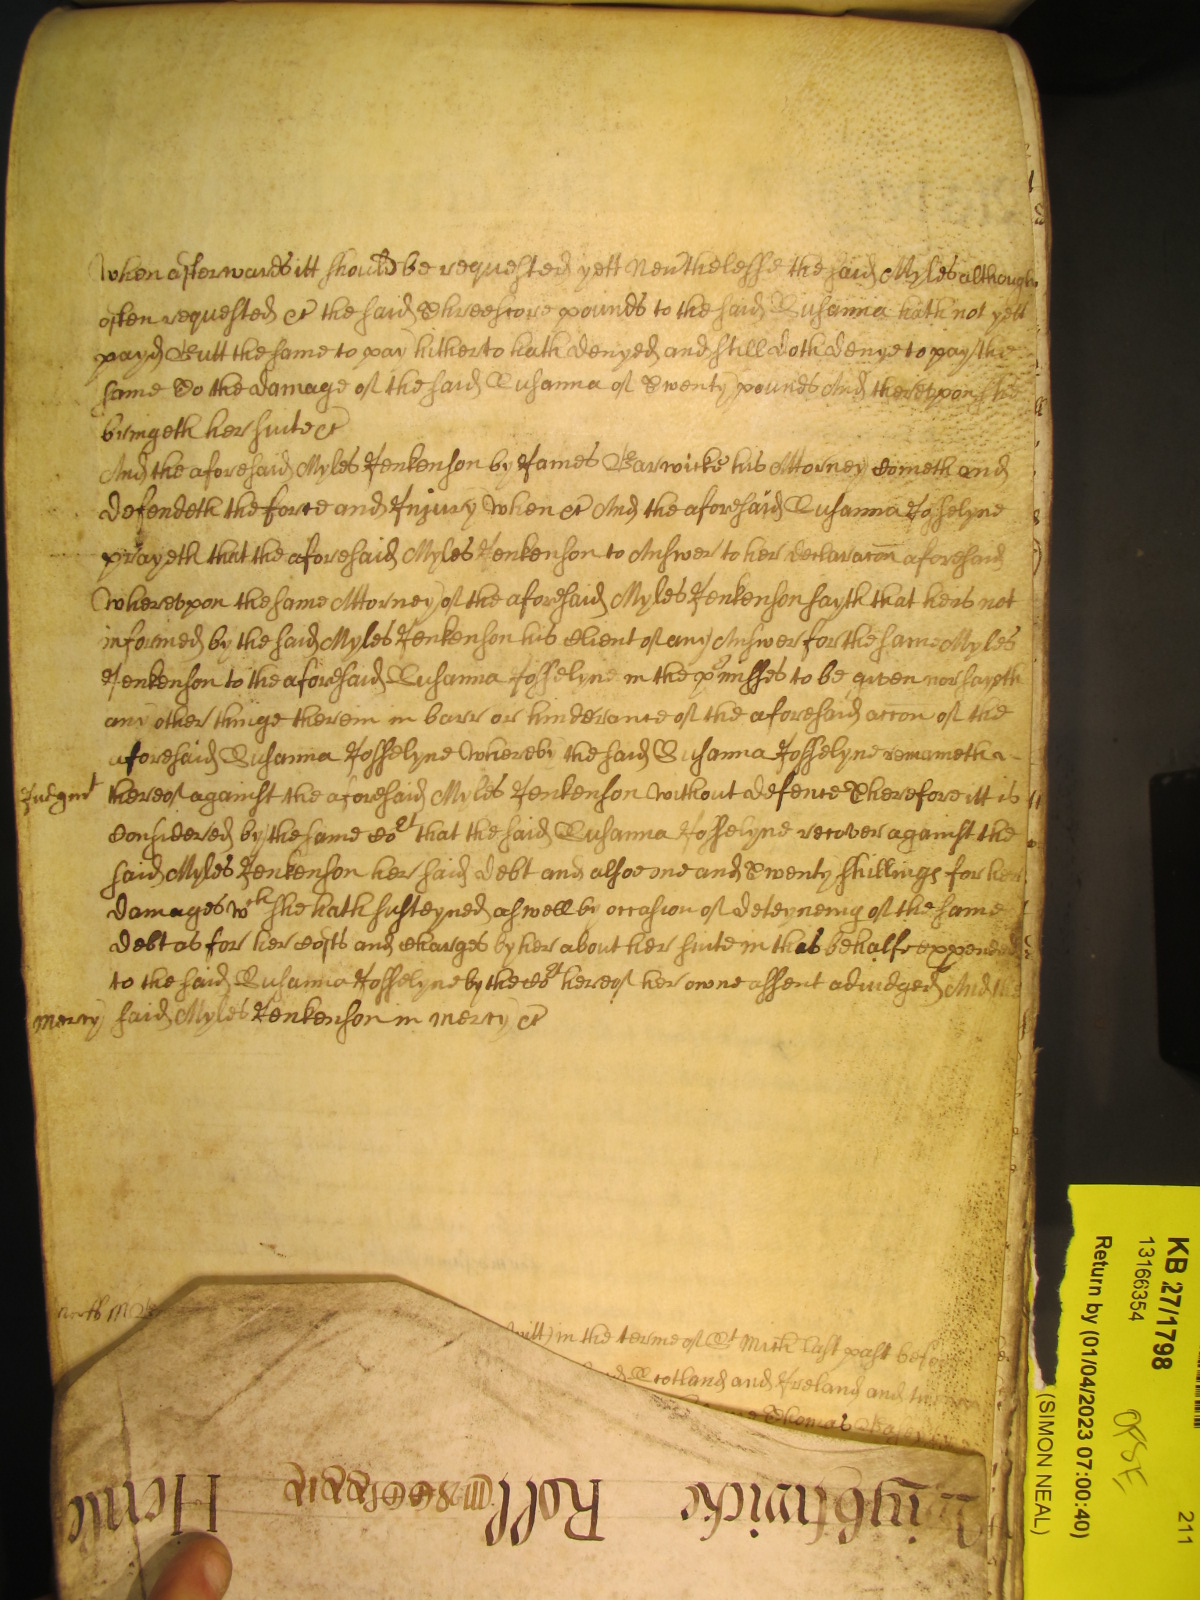 When afterwards itt should be requested yett Neuthelesse the said Myles although
often requested &c the said Threescore pounds to the said Susanna hath not yett
payd Butt the same to pay hitherto hath denyed and still doth denye to pay the
same To the damage of the said Susanna of Twenty pounds And thereupon she
bringeth her suite &c
And the aforesaid Myles Jenkenson by James Barwicke his Attorney Cometh and
defendeth the force and Injury When &c And the aforesaid Susanna Josselyne
prayeth that the aforesaid Myles Jenkenson to Answer to her declaracon aforesaid
Whereupon the same Attorney of the aforesaid Myles Jenkenson sayth that he is not
informed by the said Myles Jenkenson his Client of any Answer for the same Myles
Jenkenson to the aforesaid Susanna Josselyne in the pmisses to be given nor sayeth
any other thinge therein in barr or hinderance of the aforesaid accon of the
aforesaid Susanna Josselyne Whereby the said Susanna Josselyne remaineth
Judgmt thereof against the aforesaid Myles Jenkenson without defence Therefore itt is
Considered by the same Cort that the said Susanna Josselyne recover against the
said Myles Jenkenson her said debt and alsoe one and Twenty shillings for her
damages wch she hath susteyned aswell by occasion of deteyneing of the same
debt as for her Costs and Charges by her about her suite in this behalfe expended
to the said Susanna Josselyne by the Cort hereof her owne assent adiudged And the
Mercy said Myles Jenkenson in mercy &c
in the terme of St Mich last past before
Scotland and Ireland and
Thomas
Roll
KB 27/1798
13166354
Return by (01/04/2023 07:00:40)
(SIMON NEAL)
211